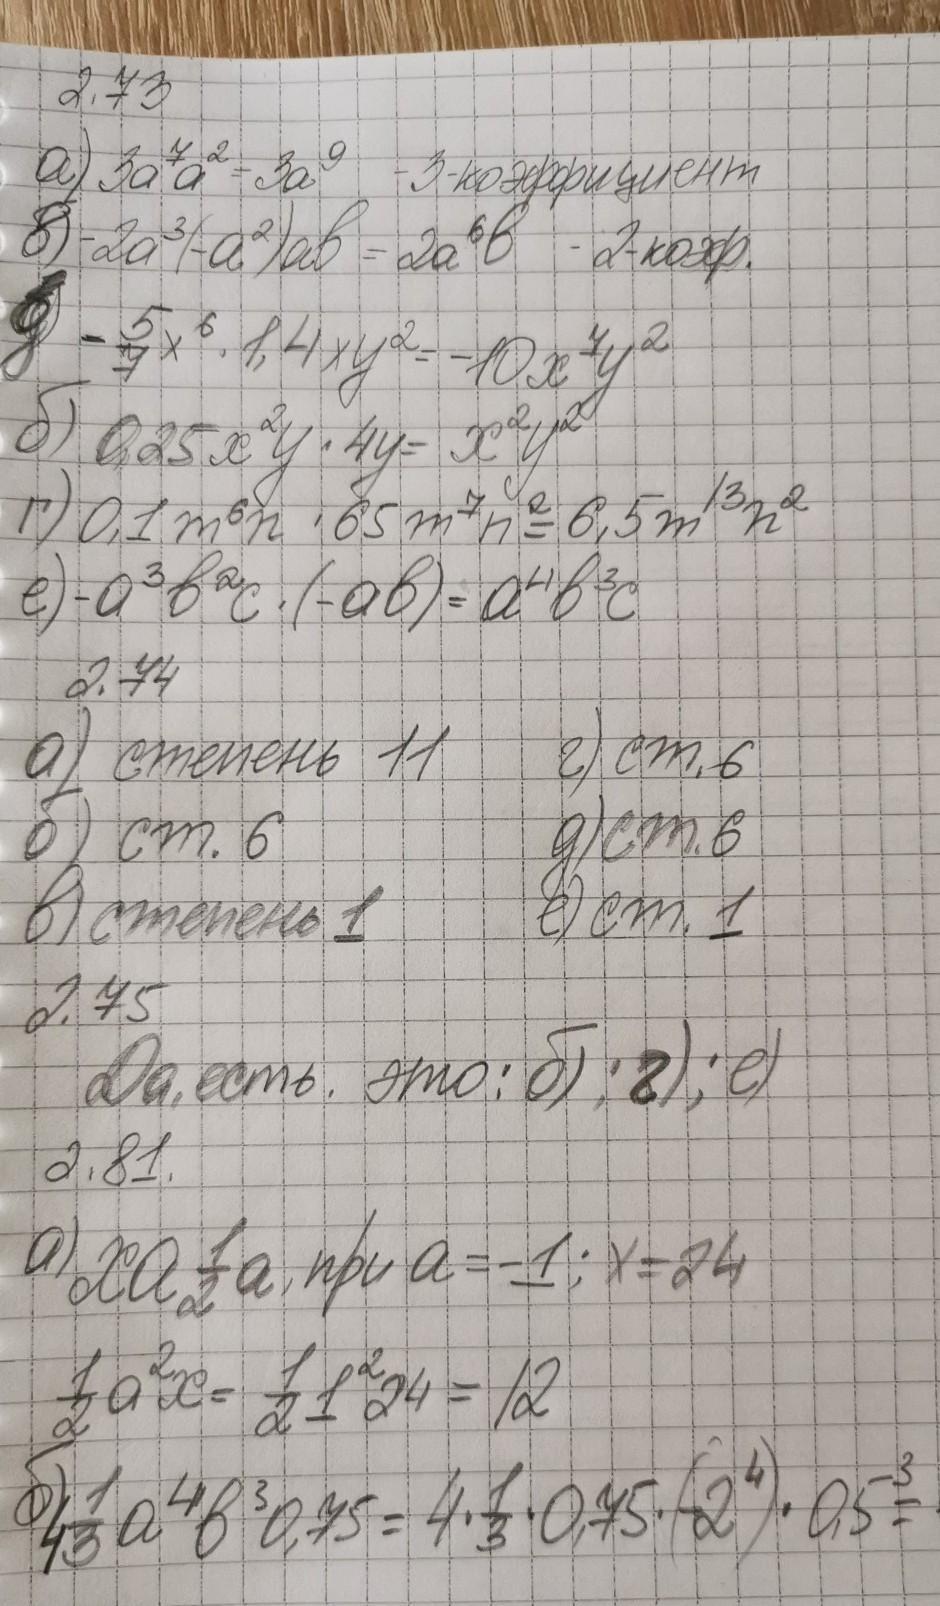 2.73
а) 3a⁷a² = 3a⁹ -3-коэффициент
в) -2a³(-a²)ab = 2a⁶b - 2-коэф.
д) -5/7x⁶ · 1,4xy² = -10x⁷y²
б) 0,25x²y · 4y = x²y²
г) 0,1m⁶n · 65m⁷n² = 6,5m¹³n²
е) -a³b²c · (-ab) = a⁴b³c
2.74
а) степень 11 г) ст. 6
б) ст. 6 д) ст. 6
в) степень 1 е) ст. 1
2.75
Да, есть. это: б); г); е)
2.81.
а) xa 1/2 a, при a = -1; x = 24
1/2 a²x = 1/2 1² 24 = 12
б) 4 1/3 a⁴b³0,75 = 4 · 1/3 · 0,75 · (-2⁴) · 0,5³ =